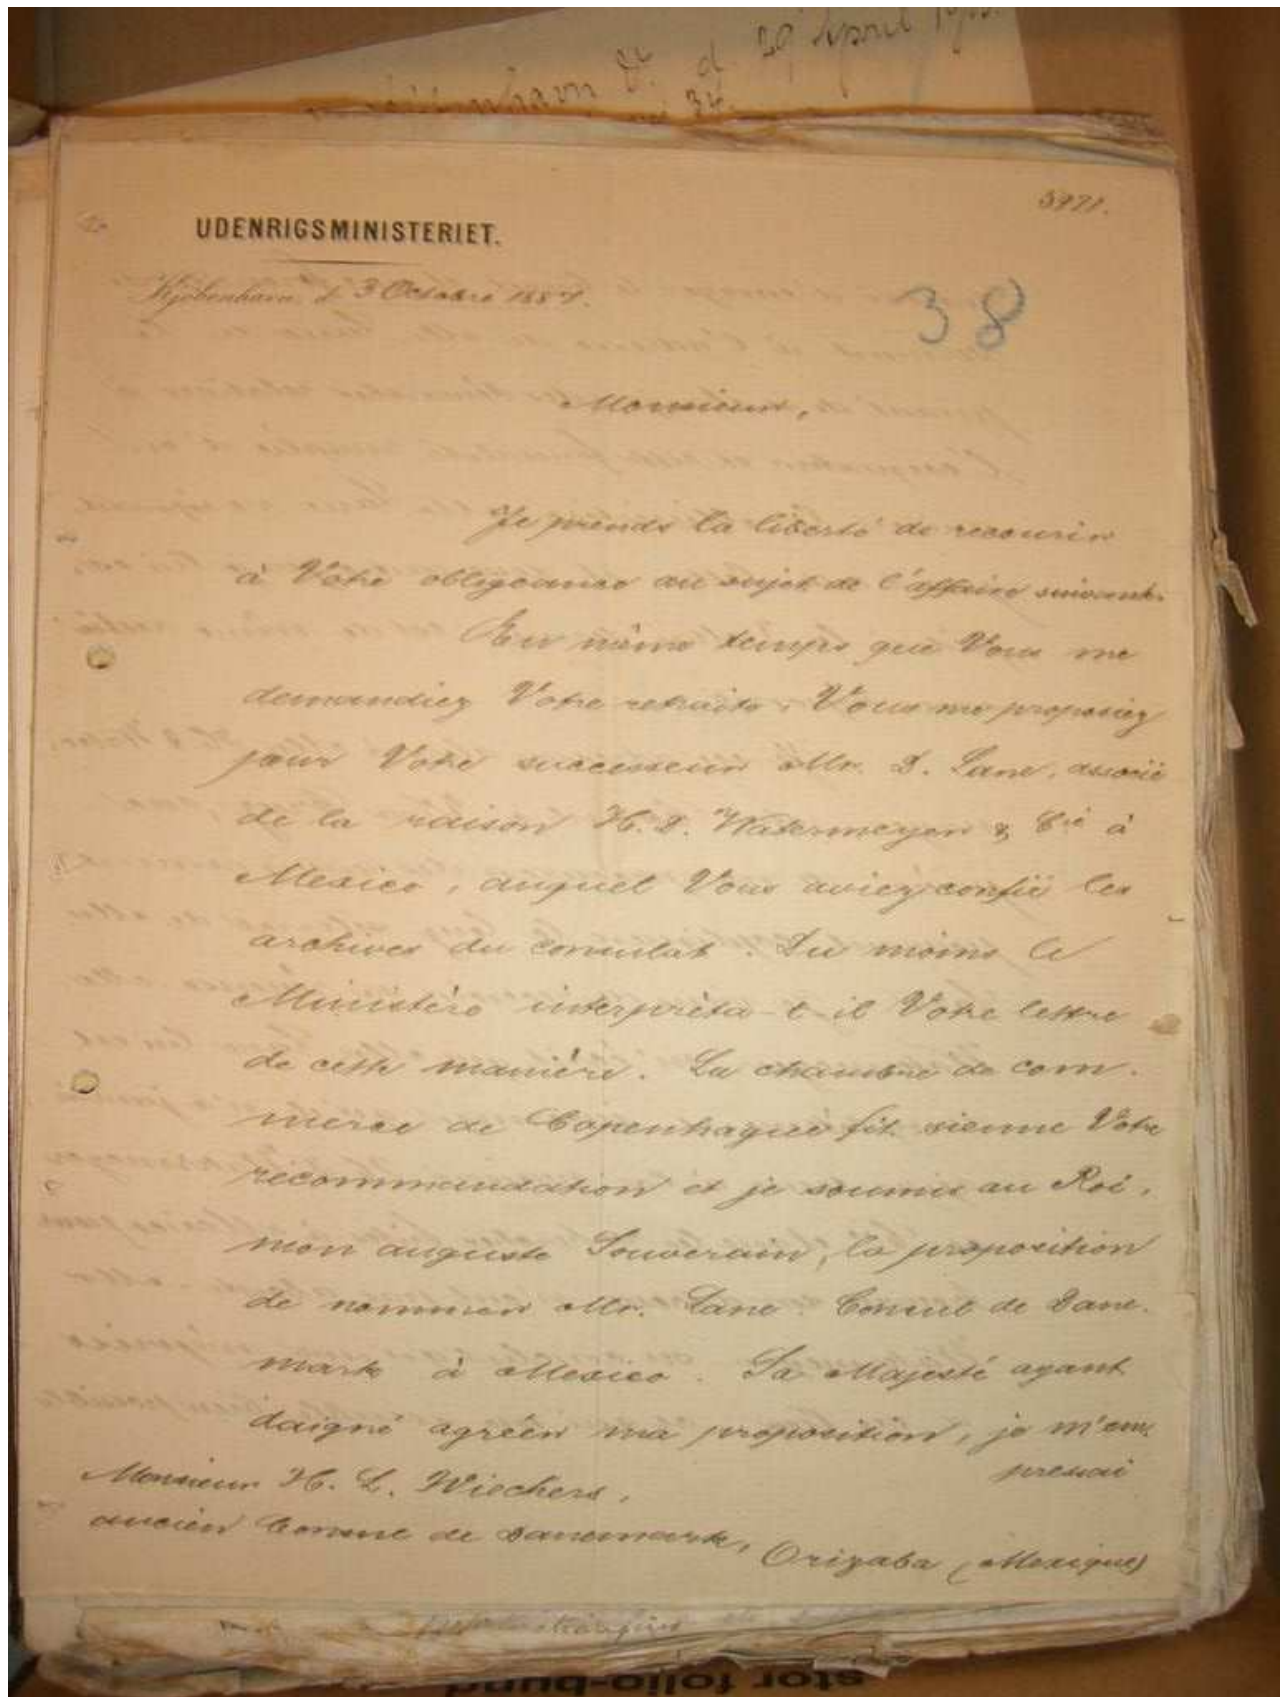 d. 29 April
34.
5971.
UDENRIGSMINISTERIET.
Kjøbenhavn d. 3 Octobre 1887.
38
Monsieur,
Je prends la liberté de recourir
à Votre obligeance au sujet de l'affaire suivante.
En même temps que Vous me
demandiez Votre retraite, Vous me proposiez
pour Votre successeur Mr. D. Lane, associé
de la raison H. D. Watermeyer & Cie à
Mexico, auquel Vous aviez confié les
archives du consulat. Du moins le
Ministère interpréta-t-il Votre lettre
de cette manière. La chambre de com-
merce de Copenhague fit sienne Votre
recommandation et je soumis au Roi,
mon auguste Souverain, la proposition
de nommer Mr. Lane Consul de Dane-
mark à Mexico. Sa Majesté ayant
daigné agréer ma proposition, je m'em-
pressai
Monsieur H. L. Wiechers,
ancien Consul de Danemark,
Orizaba (Mexique)
stor folio-bund